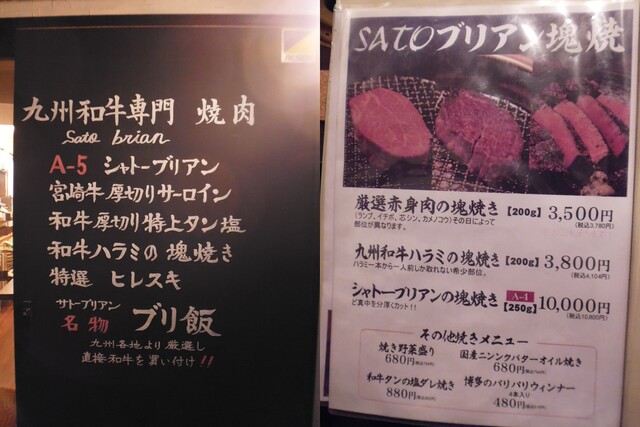 九州和牛専門 焼肉
Sato brian
A-5 シャトーブリアン
宮崎牛厚切りサーロイン
和牛厚切り特上タン塩
和牛ハラミの塊焼き
特選 ヒレスキ
サトーブリアン
名物 ブリ飯
九州各地より厳選し
直接和牛を買い付け!!
SATOブリアン塊焼
厳選赤身肉の塊焼き【200g】3,500円
(ランプ、イチボ、芯シン、カメノコウ)その日によって
部位が異なります。
(税込3,780円)
九州和牛ハラミの塊焼き【200g】3,800円
ハラミ一本から一人前しか取れない希少部位。
(税込4,104円)
シャトーブリアンの塊焼き A-4【250g】10,000円
ど真中を分厚くカット!!
(税込10,800円)
その他焼きメニュー
焼き野菜盛り
680円
国産ニンニクバターオイル焼き
680円
和牛タンの塩ダレ焼き
880円
博多のパリパリウィンナー
4本入り
480円